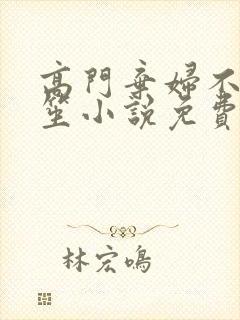 高門棄婦不
笙小說免費
林宏鳴